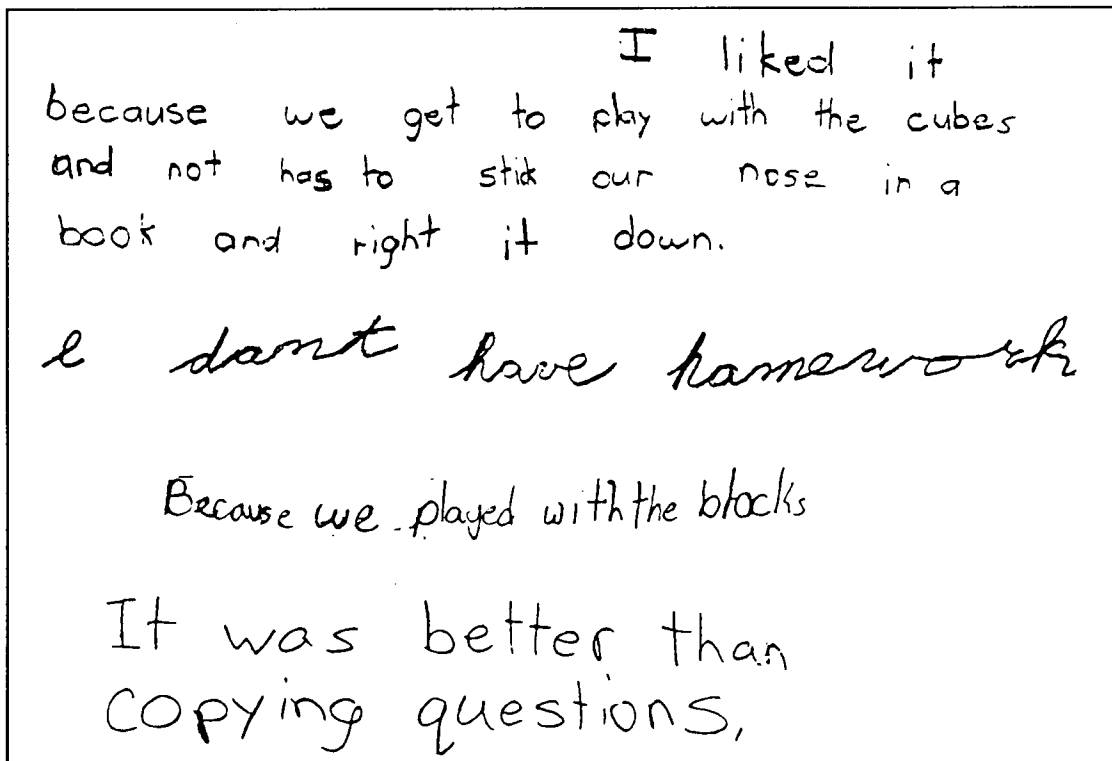 I liked it
because we get to play with the cubes
and not has to stick our nose in a
book and right it down.
I don't have homework
Because we played with the blocks
It was better than
copying questions,